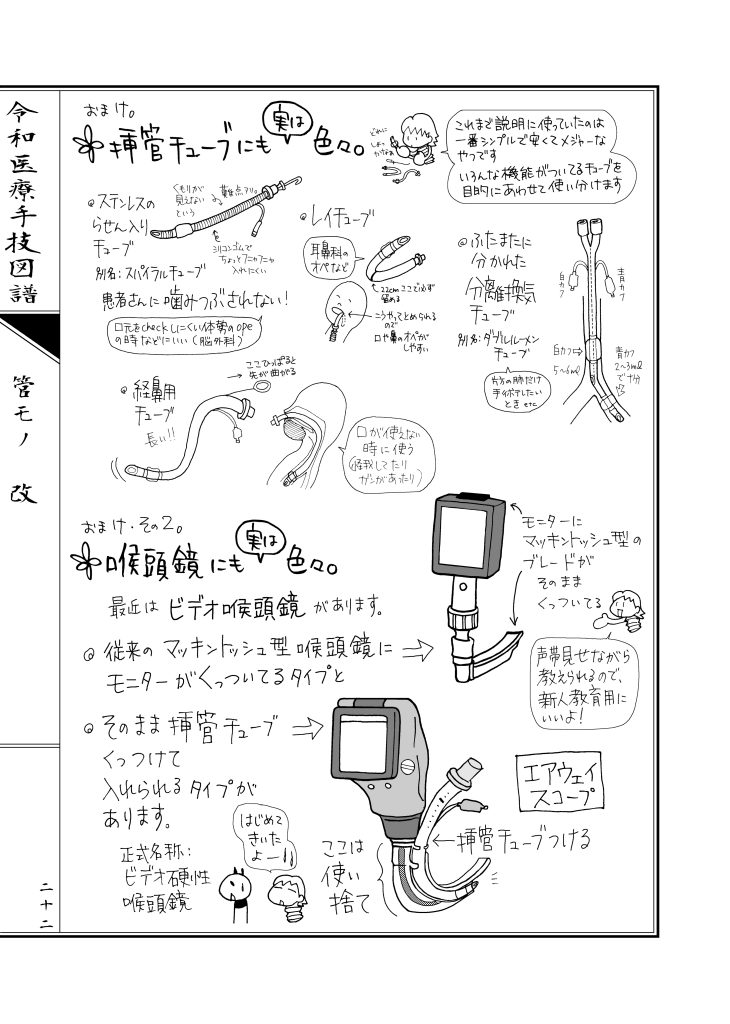 令和医療手技図譜
管モノ 改
二十二
おまけ。
挿管チューブにも
実は
色々。
どれに
しよっ
かなぁ
これまで説明に使っていたのは
一番シンプルで安くてメジャーな
やつです
いろんな機能がついてるチューブを
目的にあわせて使い分けます
ステンレスの
らせん入り
チューブ
別名:スパイラルチューブ
くもりが
見えない
という
難点アリ。
シリコンゴムで
ちょっとフニャフニャ
入れにくい
患者さんに噛みつぶされない!
口元をcheckしにくい体勢のope
の時などにいい(脳外科)
レイチューブ
耳鼻科の
オペなど
22cmここで必ず
留める
こうやってとめられる
ので
口や鼻のオペが
しやすい
ふたまたに
分かれた
分離換気
チューブ
別名:ダブルルーメン
チューブ
片方の肺だけ
手術したい
とき etc
白カフ
青カフ
白カフ→
5~6ml
青カフ
2~3ml
で十分
経鼻用
チューブ
長い!!
ここひっぱると
先が曲がる
口が使えない
時に使う
(怪我してたり
ガンがあったり)
おまけ・その2。
喉頭鏡にも
実は
色々。
最近は ビデオ喉頭鏡 があります。
従来の マッキントッシュ型 喉頭鏡に
モニターがくっついてるタイプと
モニターに
マッキントッシュ型の
ブレードが
そのまま
くっついてる
声帯見せながら
教えられるので、
新人教育用に
いいよ!
そのまま 挿管チューブ
くっつけて
入れられるタイプが
あります。
正式名称:
ビデオ硬性
喉頭鏡
はじめて
きいた
よー!!
ここは
使い
捨て
←挿管チューブつける
エアウェイ
スコープ